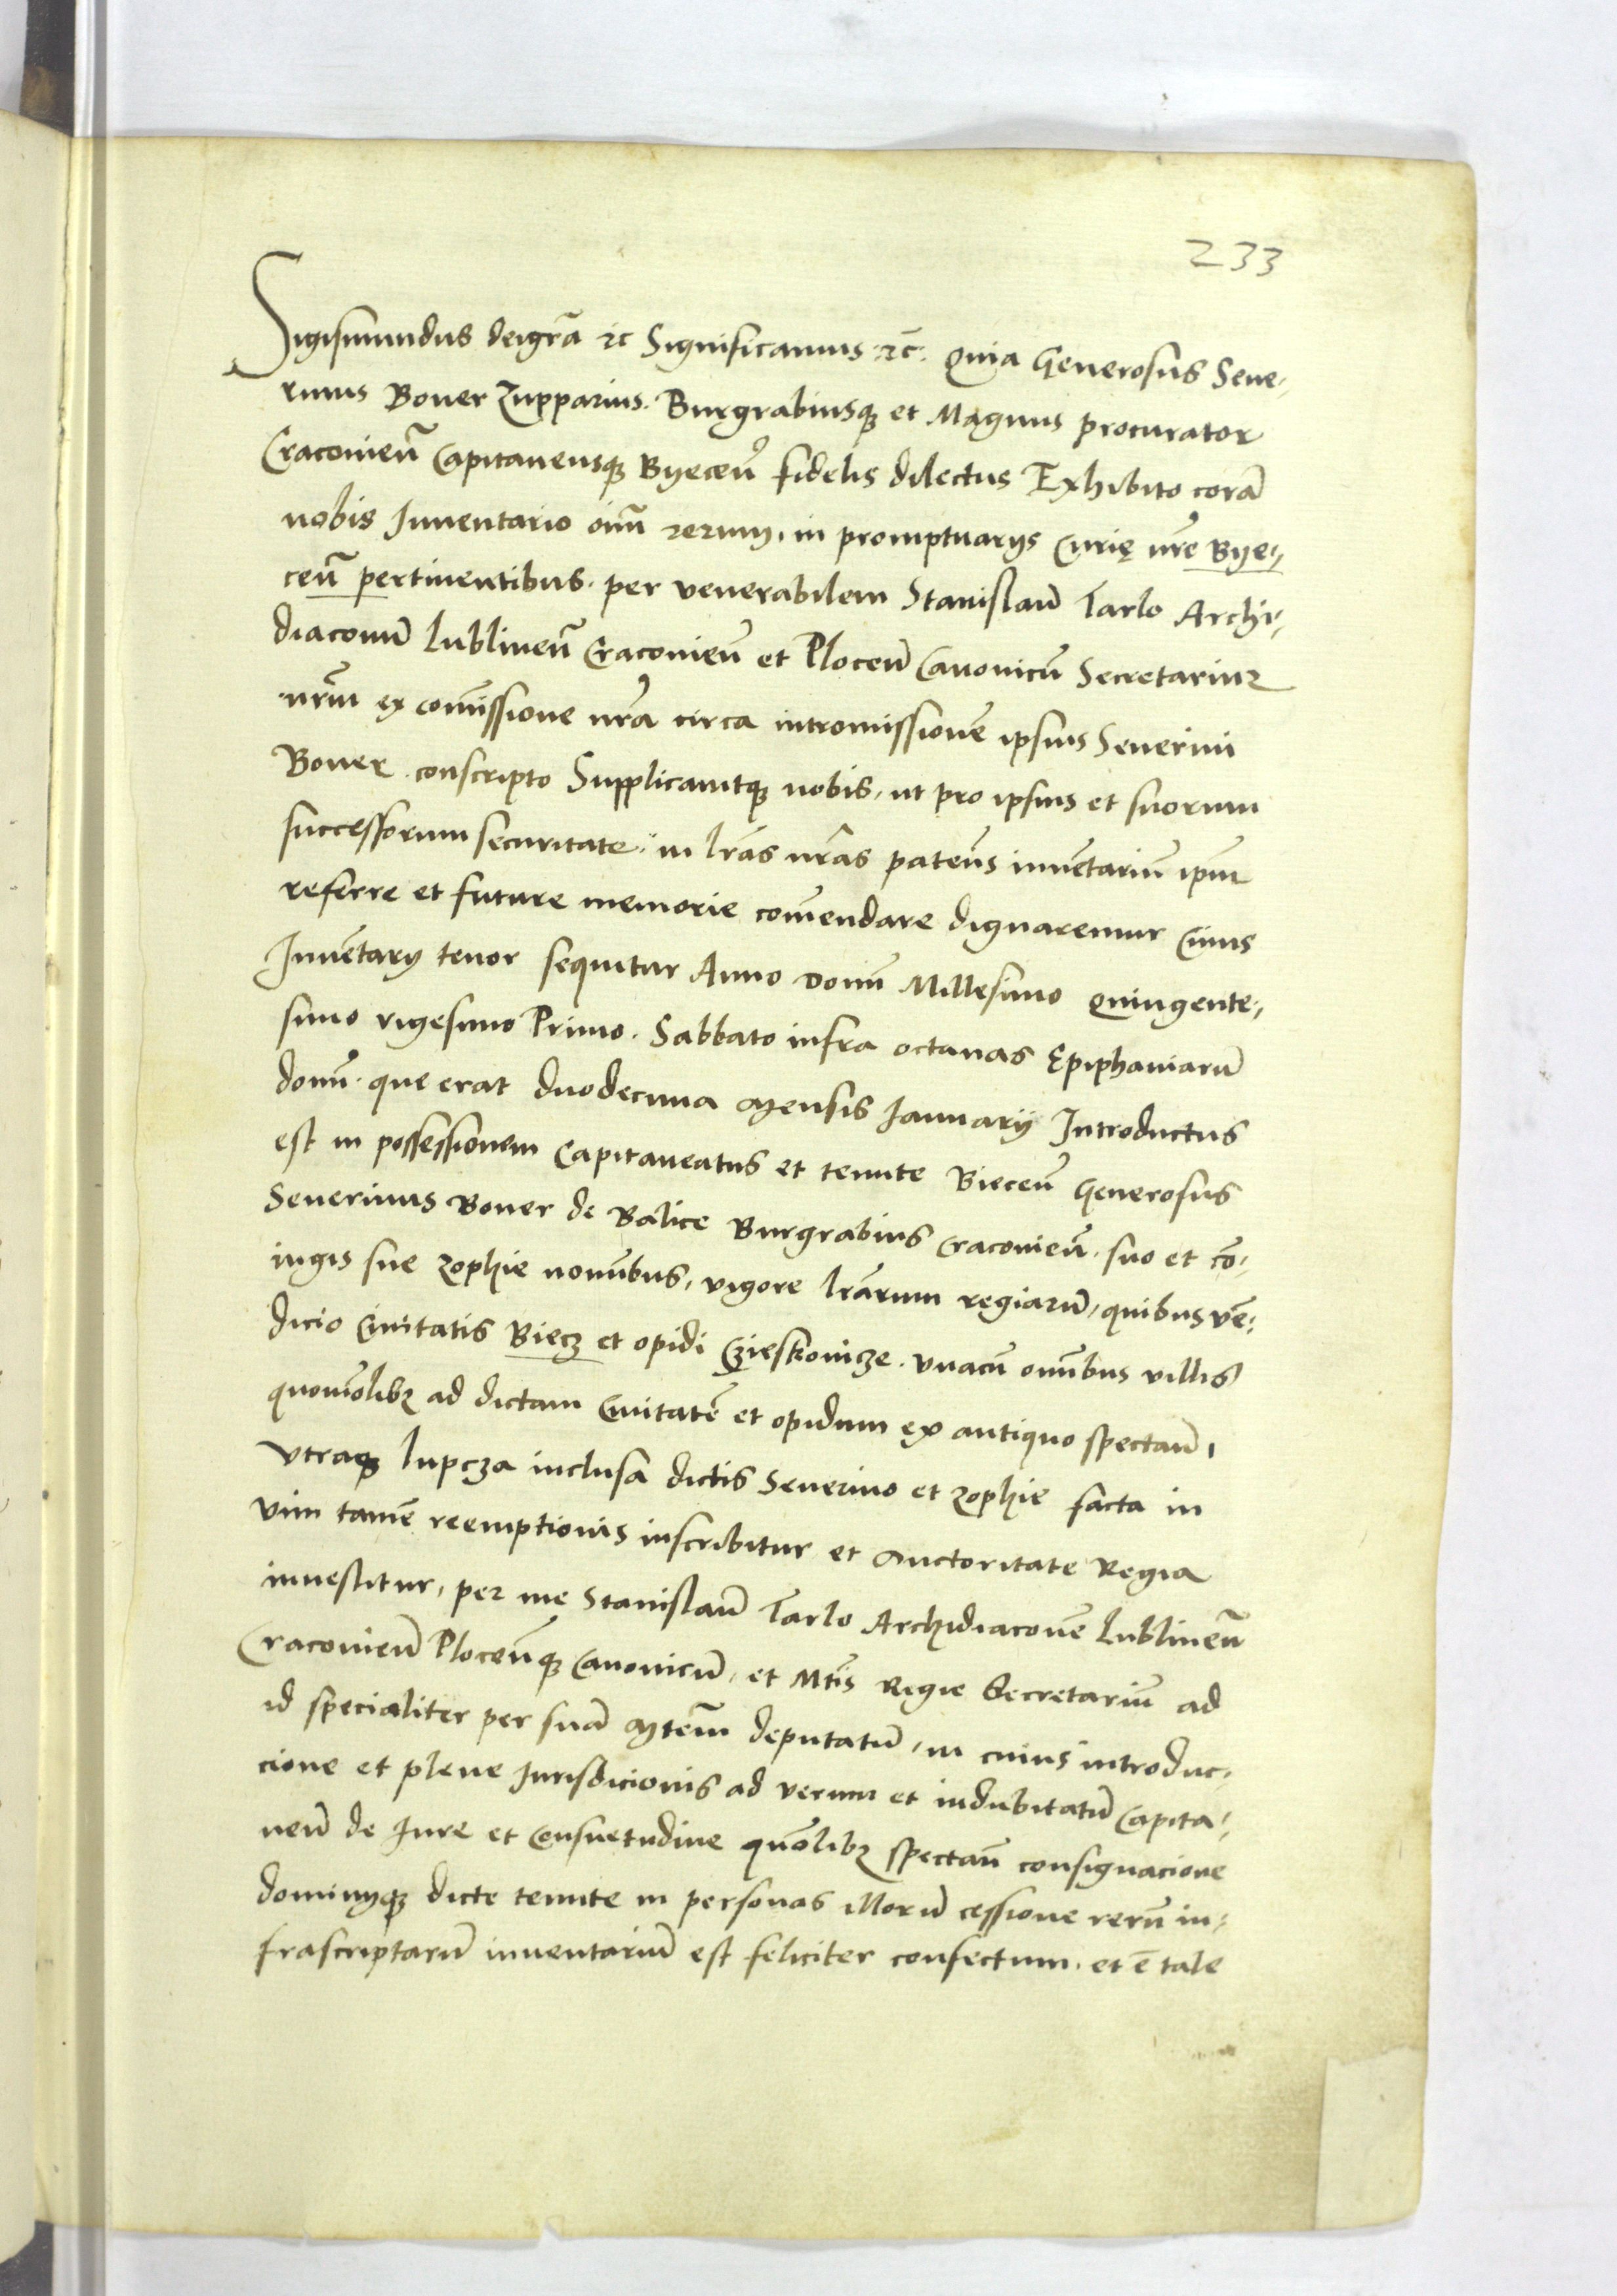 233
Sigismundus deigrā ⁊c Significamus ⁊c̄. Quia Generosus Seue-
rinus Boner Zupparius. Burgrabiusqꝫ et Magnus procurator
Cracouieñ Capitaneusqꝫ Byeceñ fidelis dilectus Exhibito corā
nobis Inuentario oīm rerum, in promptuarijs Curię nr̄e Bye-
ceñ pertinentibus. per venerabilem Stanislaū Tarlo Archi-
diaconū Lublineñ Cracouieñ et Ploceñ Canonicū Secretarium
nr̄m ex com̄issione nr̄a circa intromissionē ipsius Seuerini
Boner conscripto Supplicauitqꝫ nobis, ut pro ipsius et suorum
successorum securitate in lr̄as nr̄as pateñs inuētariū ip̄m
referre et future memorie com̄endare dignaremur Cuius
Inuētarij tenor sequitur Anno domī Millesimo Quingente-
simo vigesimo Primo. Sabbato infra octauas Epiphaniarū
domī. que erat duodecima mensis Ianuarij Introductus
est in possessionem Capitaneatus et tenute Bieceñ Generosus
Seuerinus Boner de Balice Burgrabius Cracouieñ. suo et cō-
iugis sue Zophie nom̄ibus, vigore lr̄arum regiarū, quibus vē-
dicio Ciuitatis Biecz et opidi Czieskouicze. vnacū om̄ibus villis
quomōlibꝫ ad dictam Ciuitatē et opidum ex antiquo spectañ,
vtraqꝫ lupcza inclusa dictis Seuerino et Zophie facta in
vim tamē reemptionis inscribitur et auctoritate Regia
inuestitur, per me Stanislaū Tarlo Archidiaconū Lublineñ
Cracouieñ Ploceñqꝫ Canonicū, et Mtīs Regie Secretariū ad
id specialiter per suā Mtēm deputatū, in cuius introduc-
cione et plene Iurisdicionis ad verum et indubitatū Capita-
neū de Iure et Consuetudine quōlibꝫ spectañ consignacione
dominijqꝫ dicte tenute in personas illorū cessione rerū in-
frascriptarū inuentariū est feliciter confectum. et ē tale